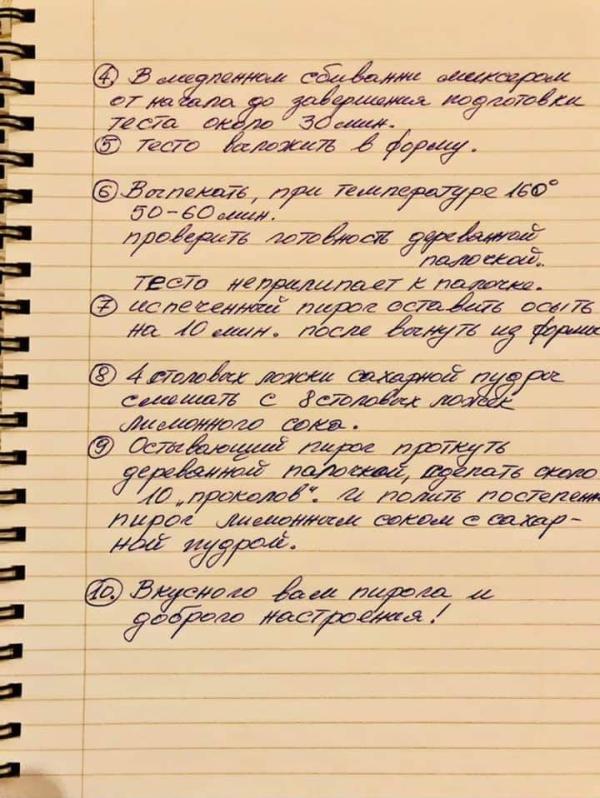 4. В медленном сбивании миксером
от начала до завершения подготовки
теста около 30 мин.
5 тесто выложить в форму.
6 Выпекать, при температуре 160°
50-60 мин.
проверить готовность деревянной
палочкой.
тесто неприлипает к палочке.
7 испеченный пирог оставить осыть
на 10 мин. после вынуть из формы
8 4 столовых ложки сахарной пудры
смешать с 8 столовых ложек
лимонного сока.
9 Остывающий пирог проткнуть
деревянной палочкой, сделать около
10 „проколов“. И полить постепенн
пирог лимонным соком с сахар-
ной пудрой.
10. Вкусного вам пирога и
доброго настроения!